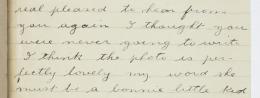 real pleased to hear from
you again I thought you
were never going to write
I think the photo is per-
fectly lovely my word she
must be a bonnie little kid